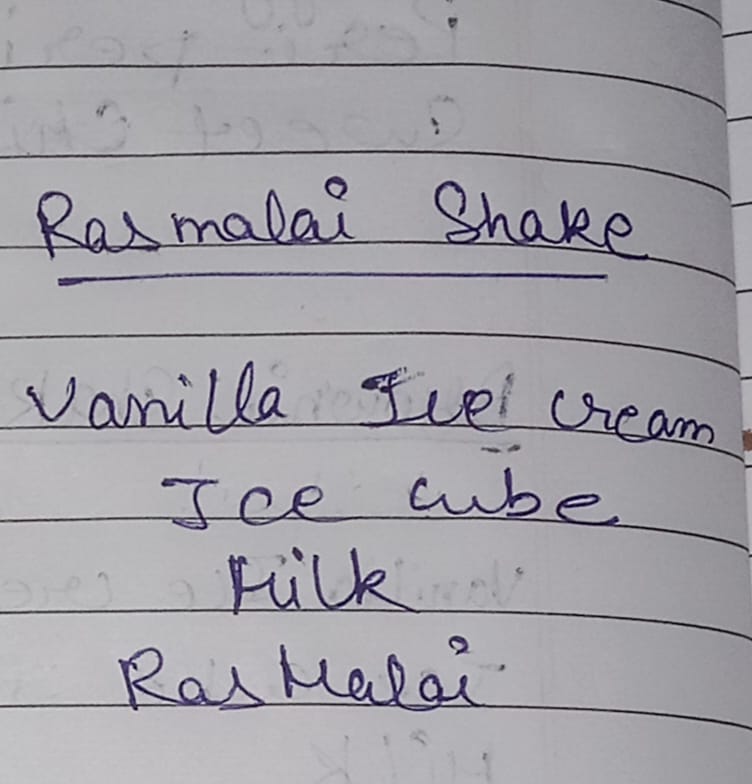 Rasmalai Shake
Vanilla Ice cream
Ice cube
Milk
Ras Malai